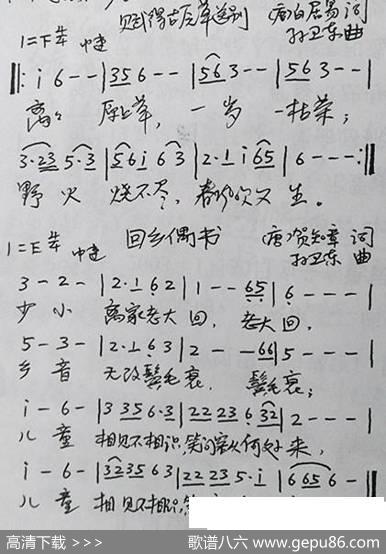 赋得古原草送别 唐 白居易 词
1=下革 中速 孙卫东 曲
‖: i 6 - - | 3 5 6 - - | 5 6 3 - - | 5 6 3 - - |
离离 原上草, 一岁 一枯荣;
3·23 5·3 | 5 6 i 6 3 | 2·1 i 6 5 | 6 - - - :‖
野火 烧不尽, 春风吹又生。
回乡偶书 唐 贺知章 词
1=E 中速 孙卫东 曲
3 - 2 - | 2·1 6 2 | 1 - - 6 5 | 6 - - - |
少 小 离家老大 回, 老大 回,
5 - 3 - | 2·1 6 3 | 2 - - 6 6 | 5 - - - |
乡 音 无改鬓毛 衰, 鬓毛 衰;
i - 6 - | 3 3 5 6·3 | 2 2 2 3 6 3 2 | 2 - - - |
儿 童 相见不相识,笑问客从何处 来,
i - 6 - | 3 2 3 5 6 3 | 2 2 2 3 5·i | 6 6 5 6 - |
儿 童 相见不相识,
高清下载 >>> 歌谱八六 www.gepu86.com